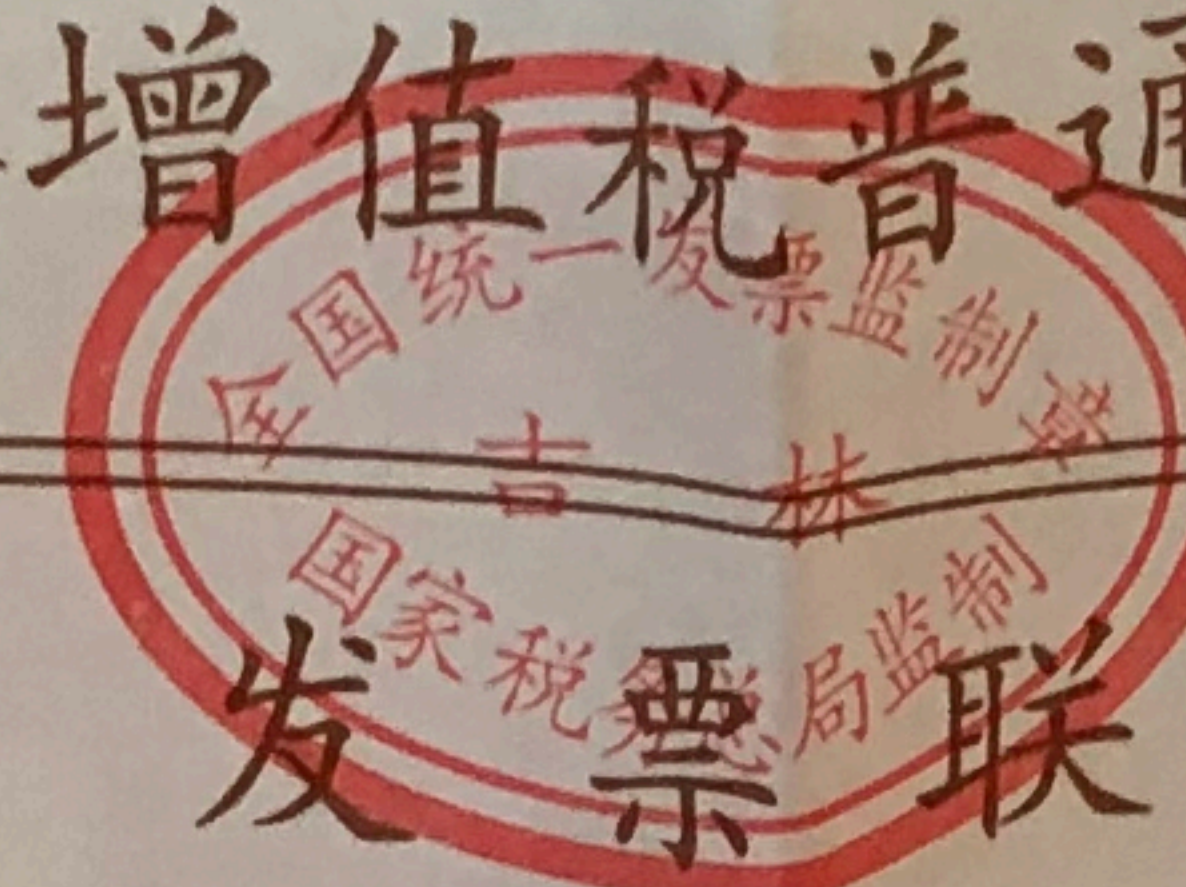 增值税普通
全国统一发票监制章
吉林
国家税务总局监制
发票联